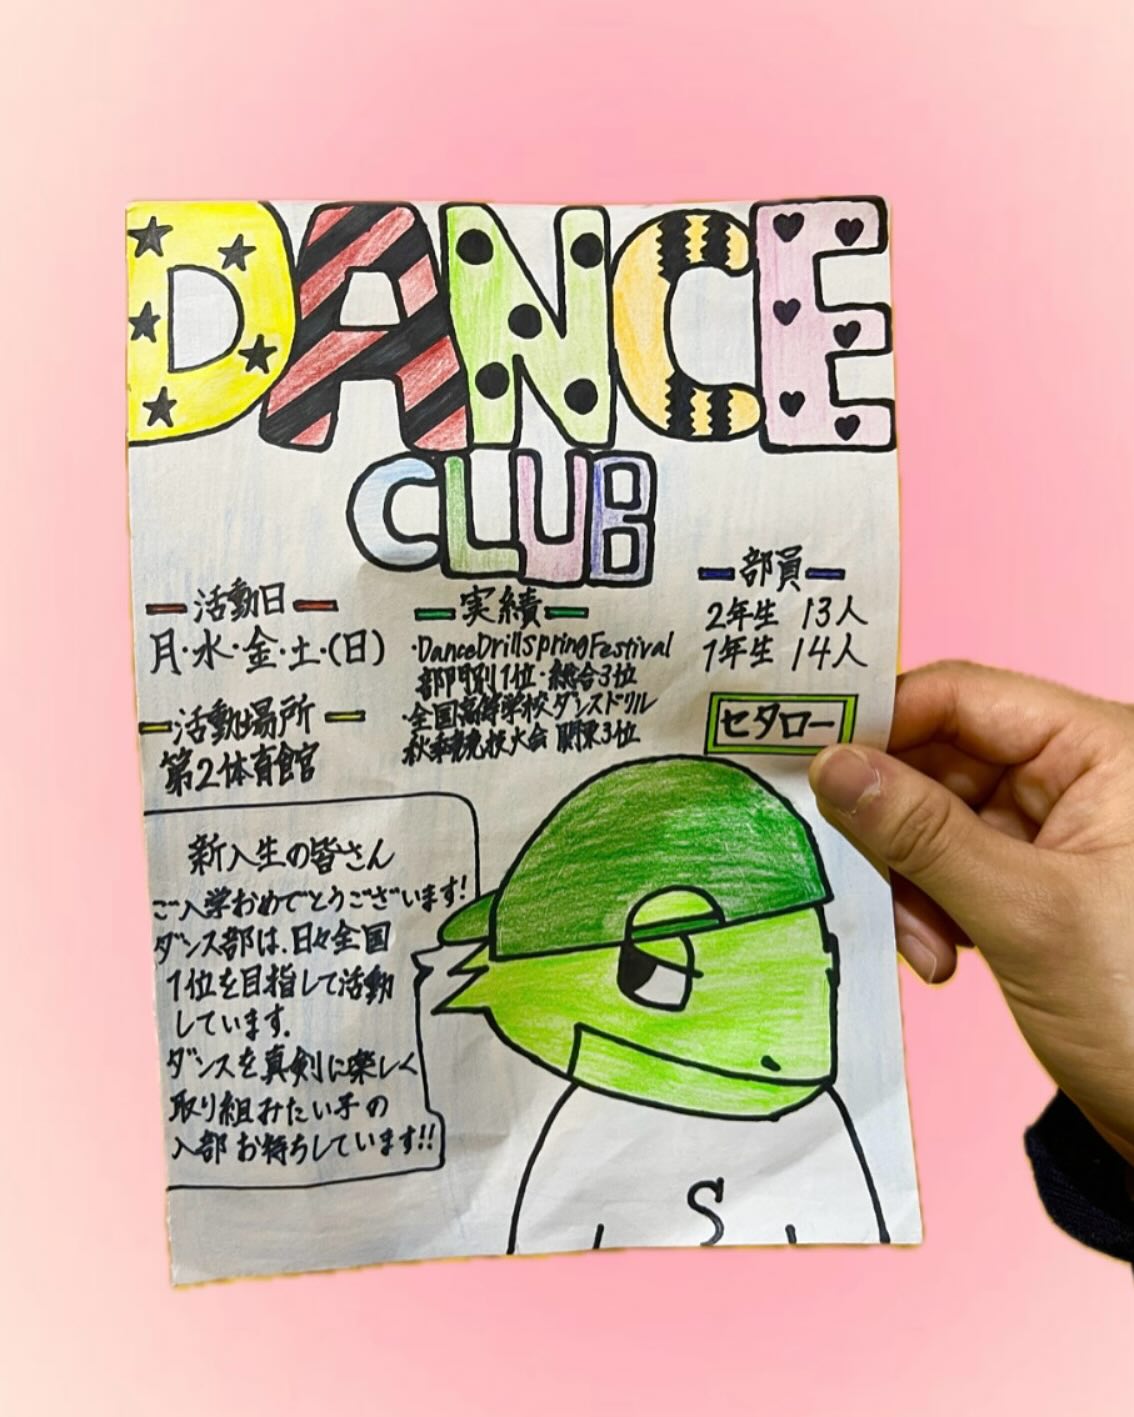 DANCE
CLUB
活動日
月・水・金・土・(日)
活動場所
第2体育館
実績
・DanceDrillSpringFestival
部門別1位・総合3位
・全国高等学校ダンスドリル
秋季競技大会 関東3位
部員
2年生 13人
1年生 14人
セタロー
新入生の皆さん
ご入学おめでとうございます!
ダンス部は、日々全国
1位を目指して活動
しています.
ダンスを真剣に楽しく
取り組みたい子の
入部お待ちしています!!
S